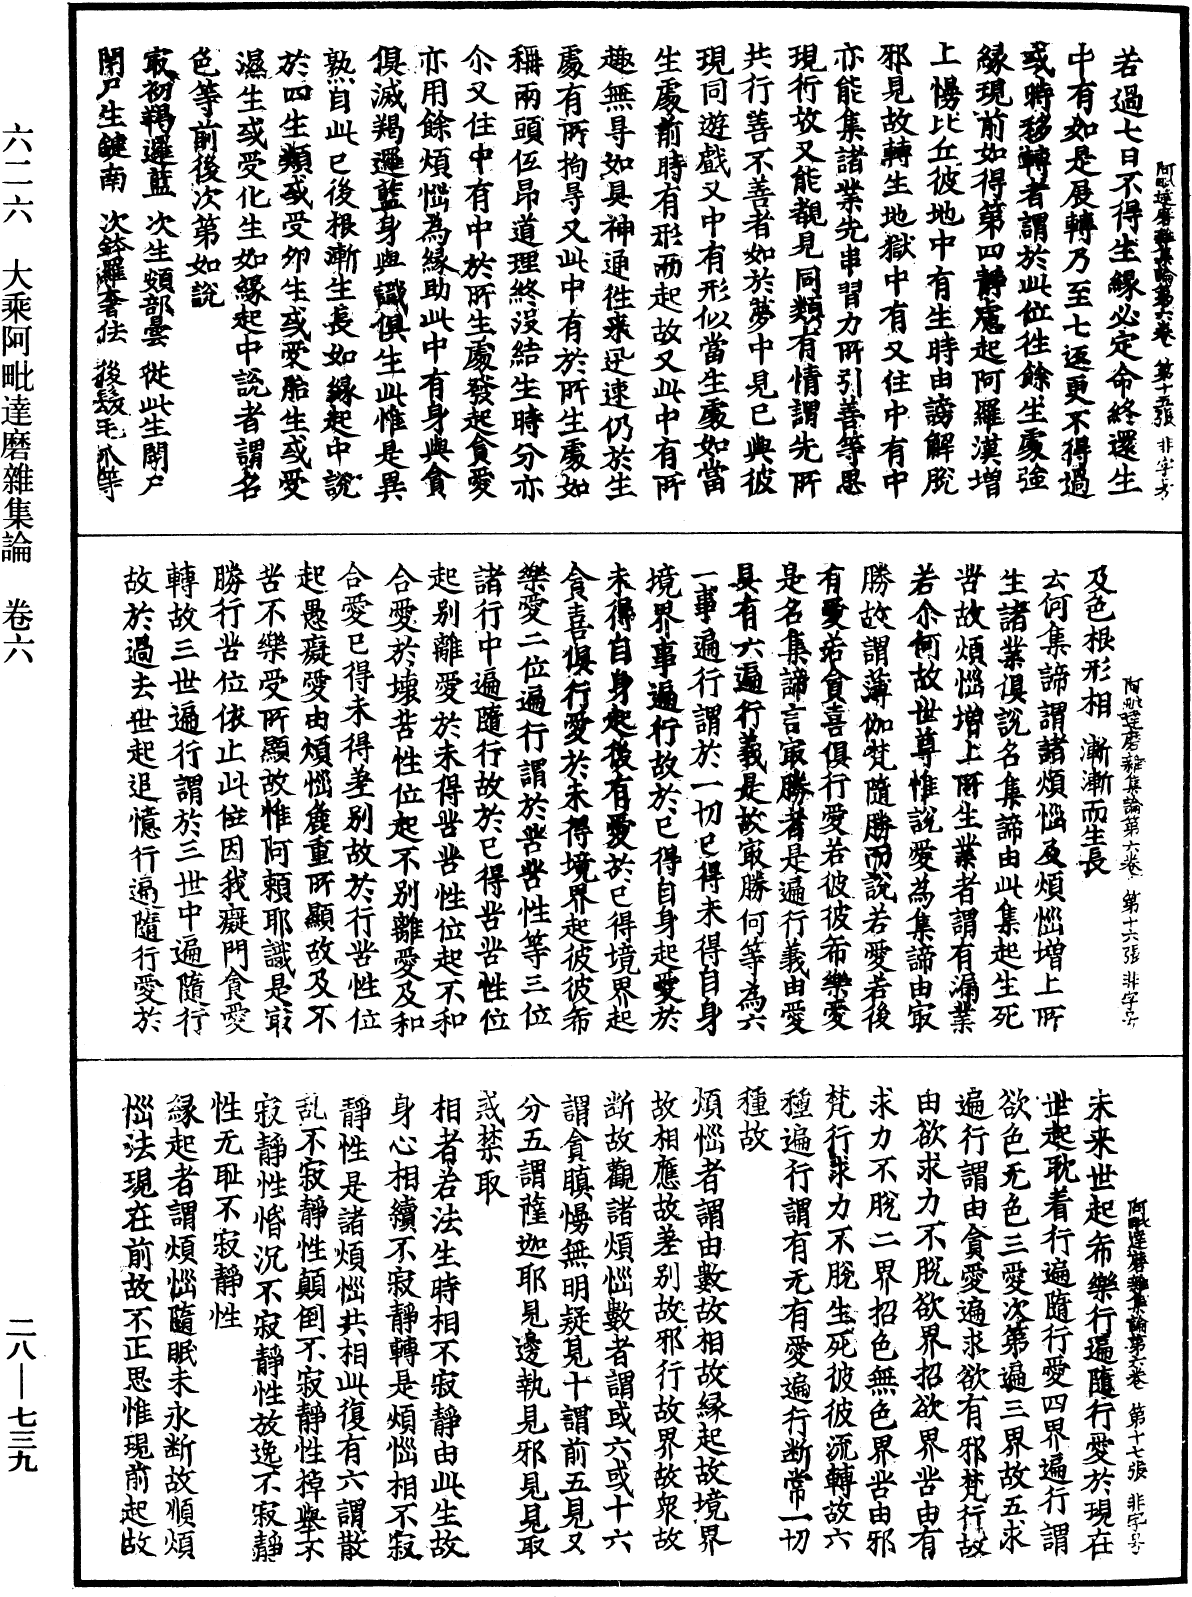 阿毗達磨雜集論第六卷　第十五張　非字号
若過七日不得生緣必定命終還生
中有如是展轉乃至七返更不得過
或時移轉者謂於此位往餘生處強
緣現前如得第四靜慮起阿羅漢增
上慢比丘彼地中有生時由謗解脫
邪見故轉生地獄中有又住中有中
亦能集諸業先串習力所引善等思
現行故又能覩見同類有情謂先所
共行善不善者如於夢中見已與彼
現同遊戲又中有形似當生處如當
生處前時有形而起故又此中有所
趣無㝵如具神通往來迅速仍於生
處有所拘㝵又此中有於所生處如
稱兩頭伍昂道理終沒結生時分亦
尒又住中有中於所生處發起貪愛
亦用餘煩惱為緣助此中有身與貪
俱滅羯邏藍身與識俱生此惟是異
熟自此已後根漸生長如緣起中說
於四生類或受卵生或受胎生或受
濕生或受化生如緣起中說者謂名
色等前後次第如說
冣初羯邏藍　次生頞部曇　從此生閉尸
閉尸生鍵南　次鉢羅奢佉　後髮毛爪等
阿毗達磨雜集論第六卷　第十六張　非字号
及色根形相　漸漸而生長
云何集諦謂諸煩惱及煩惱增上所
生諸業俱說名集諦由此集起生死
苦故煩惱增上所生業者謂有漏業
若尒何故世尊惟說愛為集諦由冣
勝故謂薄伽梵隨勝而說若愛若後
有愛若貪喜俱行愛若彼彼希樂愛
是名集諦言冣勝者是遍行義由愛
具有六遍行義是故冣勝何等為六
一事遍行謂於一切已得未得自身
境界事遍行故於已得自身起愛於
未得自身起後有愛於已得境界起
貪喜俱行愛於未得境界起彼彼希
樂愛二位遍行謂於苦苦性等三位
諸行中遍隨行故於已得苦苦性位
起別離愛於未得苦苦性位起不和
合愛於壞苦性位起不別離愛及和
合愛已得未得差別故於行苦性位
起愚癡愛由煩惱麁重所顯故及不
苦不樂受所顯故惟阿賴耶識是冣
勝行苦位依止此位因我癡門貪愛
轉故三世遍行謂於三世中遍隨行
故於過去世起追憶行遍隨行愛於
阿毗達磨雜集論第六卷　第十七張　非字号
未來世起希樂行遍隨行愛於現在
世起耽着行遍隨行愛四界遍行謂
欲色无色三愛次第遍三界故五求
遍行謂由貪愛遍求欲有邪梵行故
由欲求力不脫欲界招欲界苦由有
求力不脫二界招色無色界苦由邪
梵行求力不脫生死彼彼流轉故六
種遍行謂有无有愛遍行斷常一切
種故
煩惱者謂由數故相故緣起故境界
故相應故差別故邪行故界故眾故
斷故觀諸煩惱數者謂或六或十六
謂貪瞋慢無明疑見十謂前五見又
分五謂薩迦耶見邊執見邪見見取
戒禁取
相者若法生時相不寂靜由此生故
身心相續不寂靜轉是煩惱相不寂
靜性是諸煩惱共相此復有六謂散
亂不寂靜性顛倒不寂靜性掉舉不
寂靜性惛沉不寂靜性放逸不寂靜
性无耻不寂靜性
緣起者謂煩惱隨眠未永斷故順煩
惱法現在前故不正思惟現前起故
六二六　大乘阿毗達磨雜集論　卷六
二八—七三九